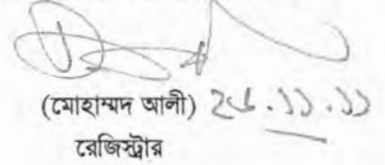 (মোহাম্মদ আলী) ২৬.১১.১১
রেজিস্ট্রার